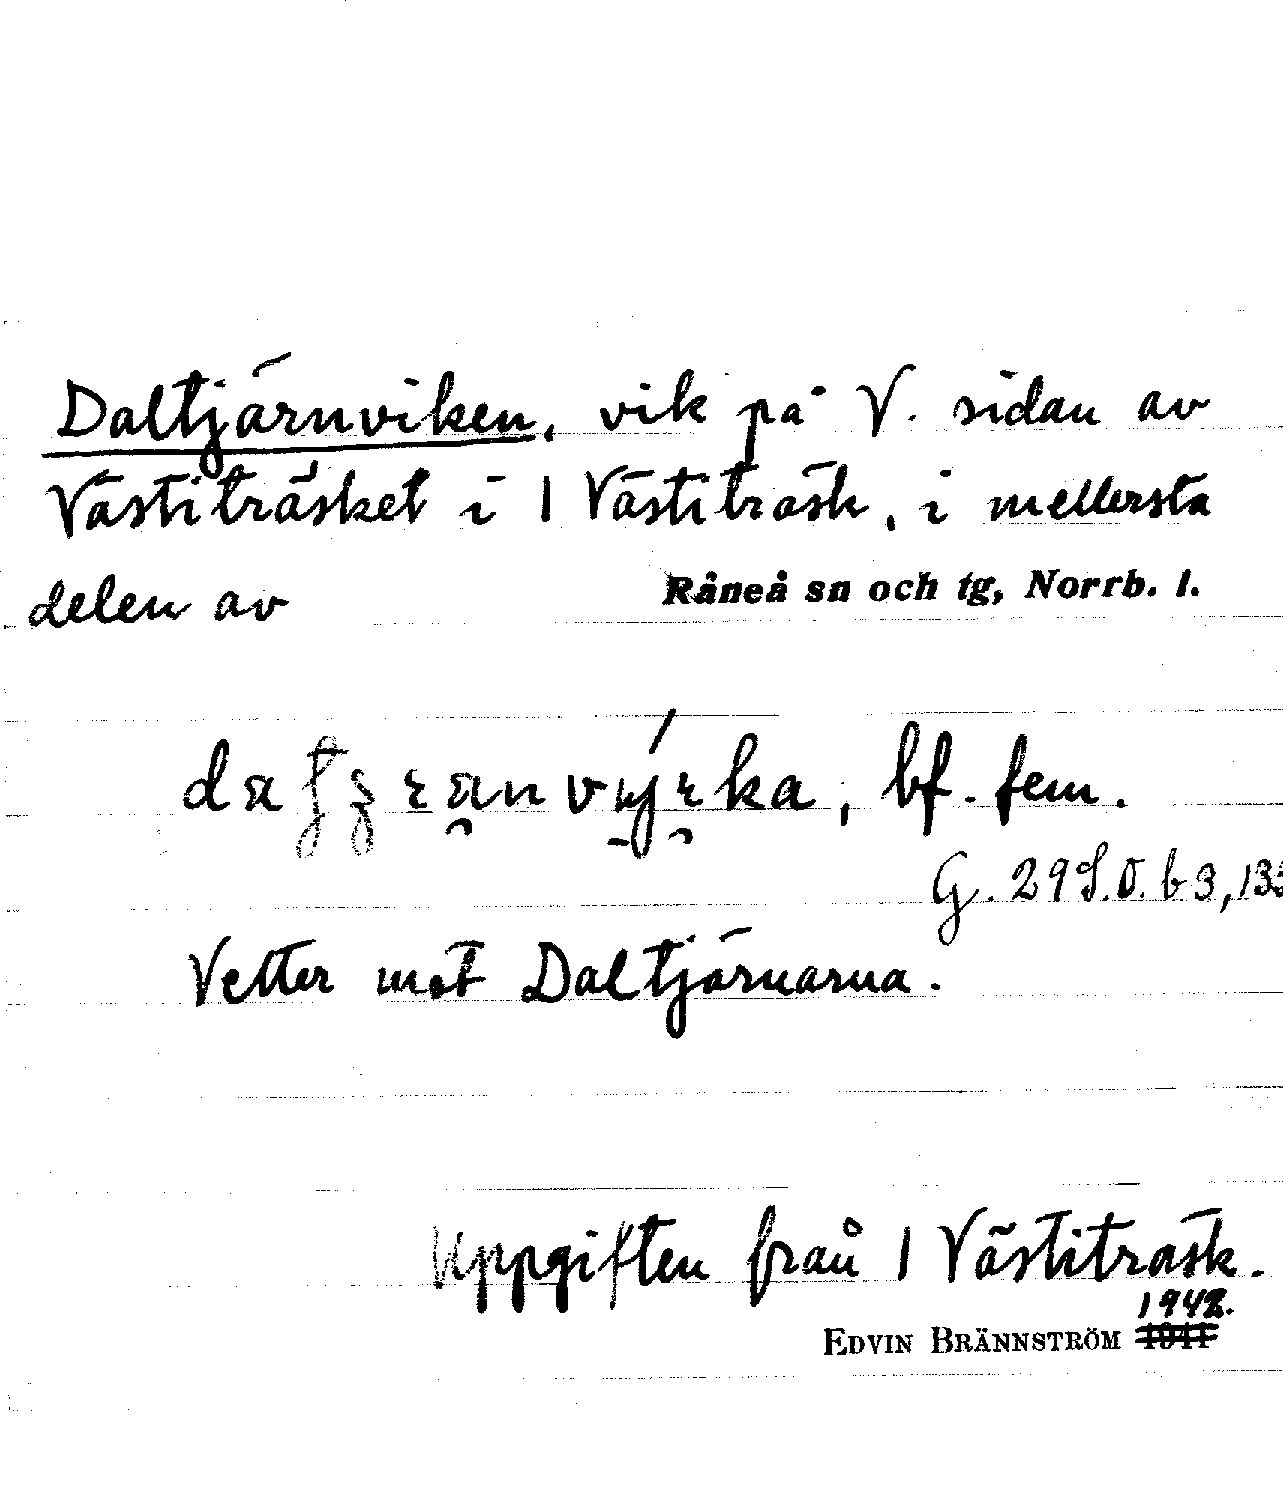 Daltjärnviken, vik på V. sidan av
Västiträsket i l Västiträsk, i mellersta
delen av Råneå sn och tg, Norrb. l.
bf. fem.
G. 29 S.O. b 3,
Vetter mot Daltjärnarna.
Uppgiften från l Västiträsk.
1942.
EDVIN BRÄNNSTRÖM 1941